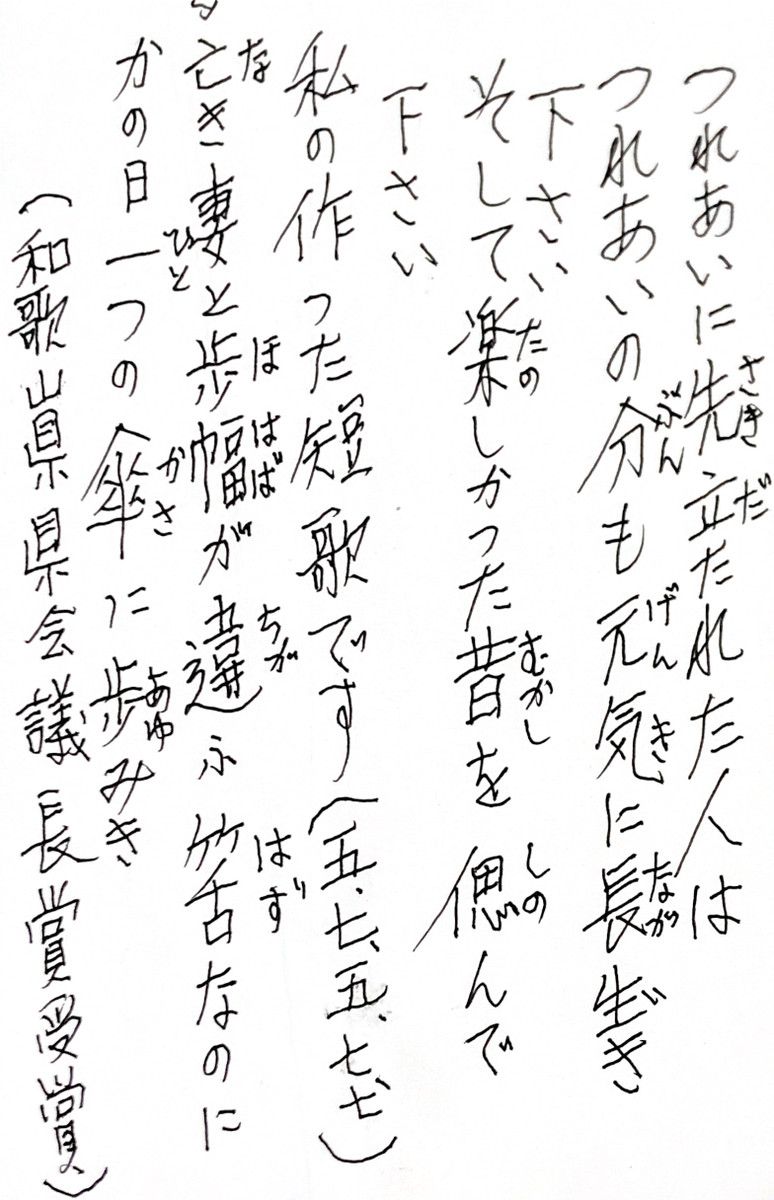 つれあいに先立たれた人は
つれあいの分も元気に長生き
下さい
そして楽しかった昔を偲んで
下さい
私の作った短歌です(五、七、五、七、七)
亡き妻と歩幅が違ふ筈なのに
かの日一つの傘に歩みき
(和歌山県県会議長賞受賞)